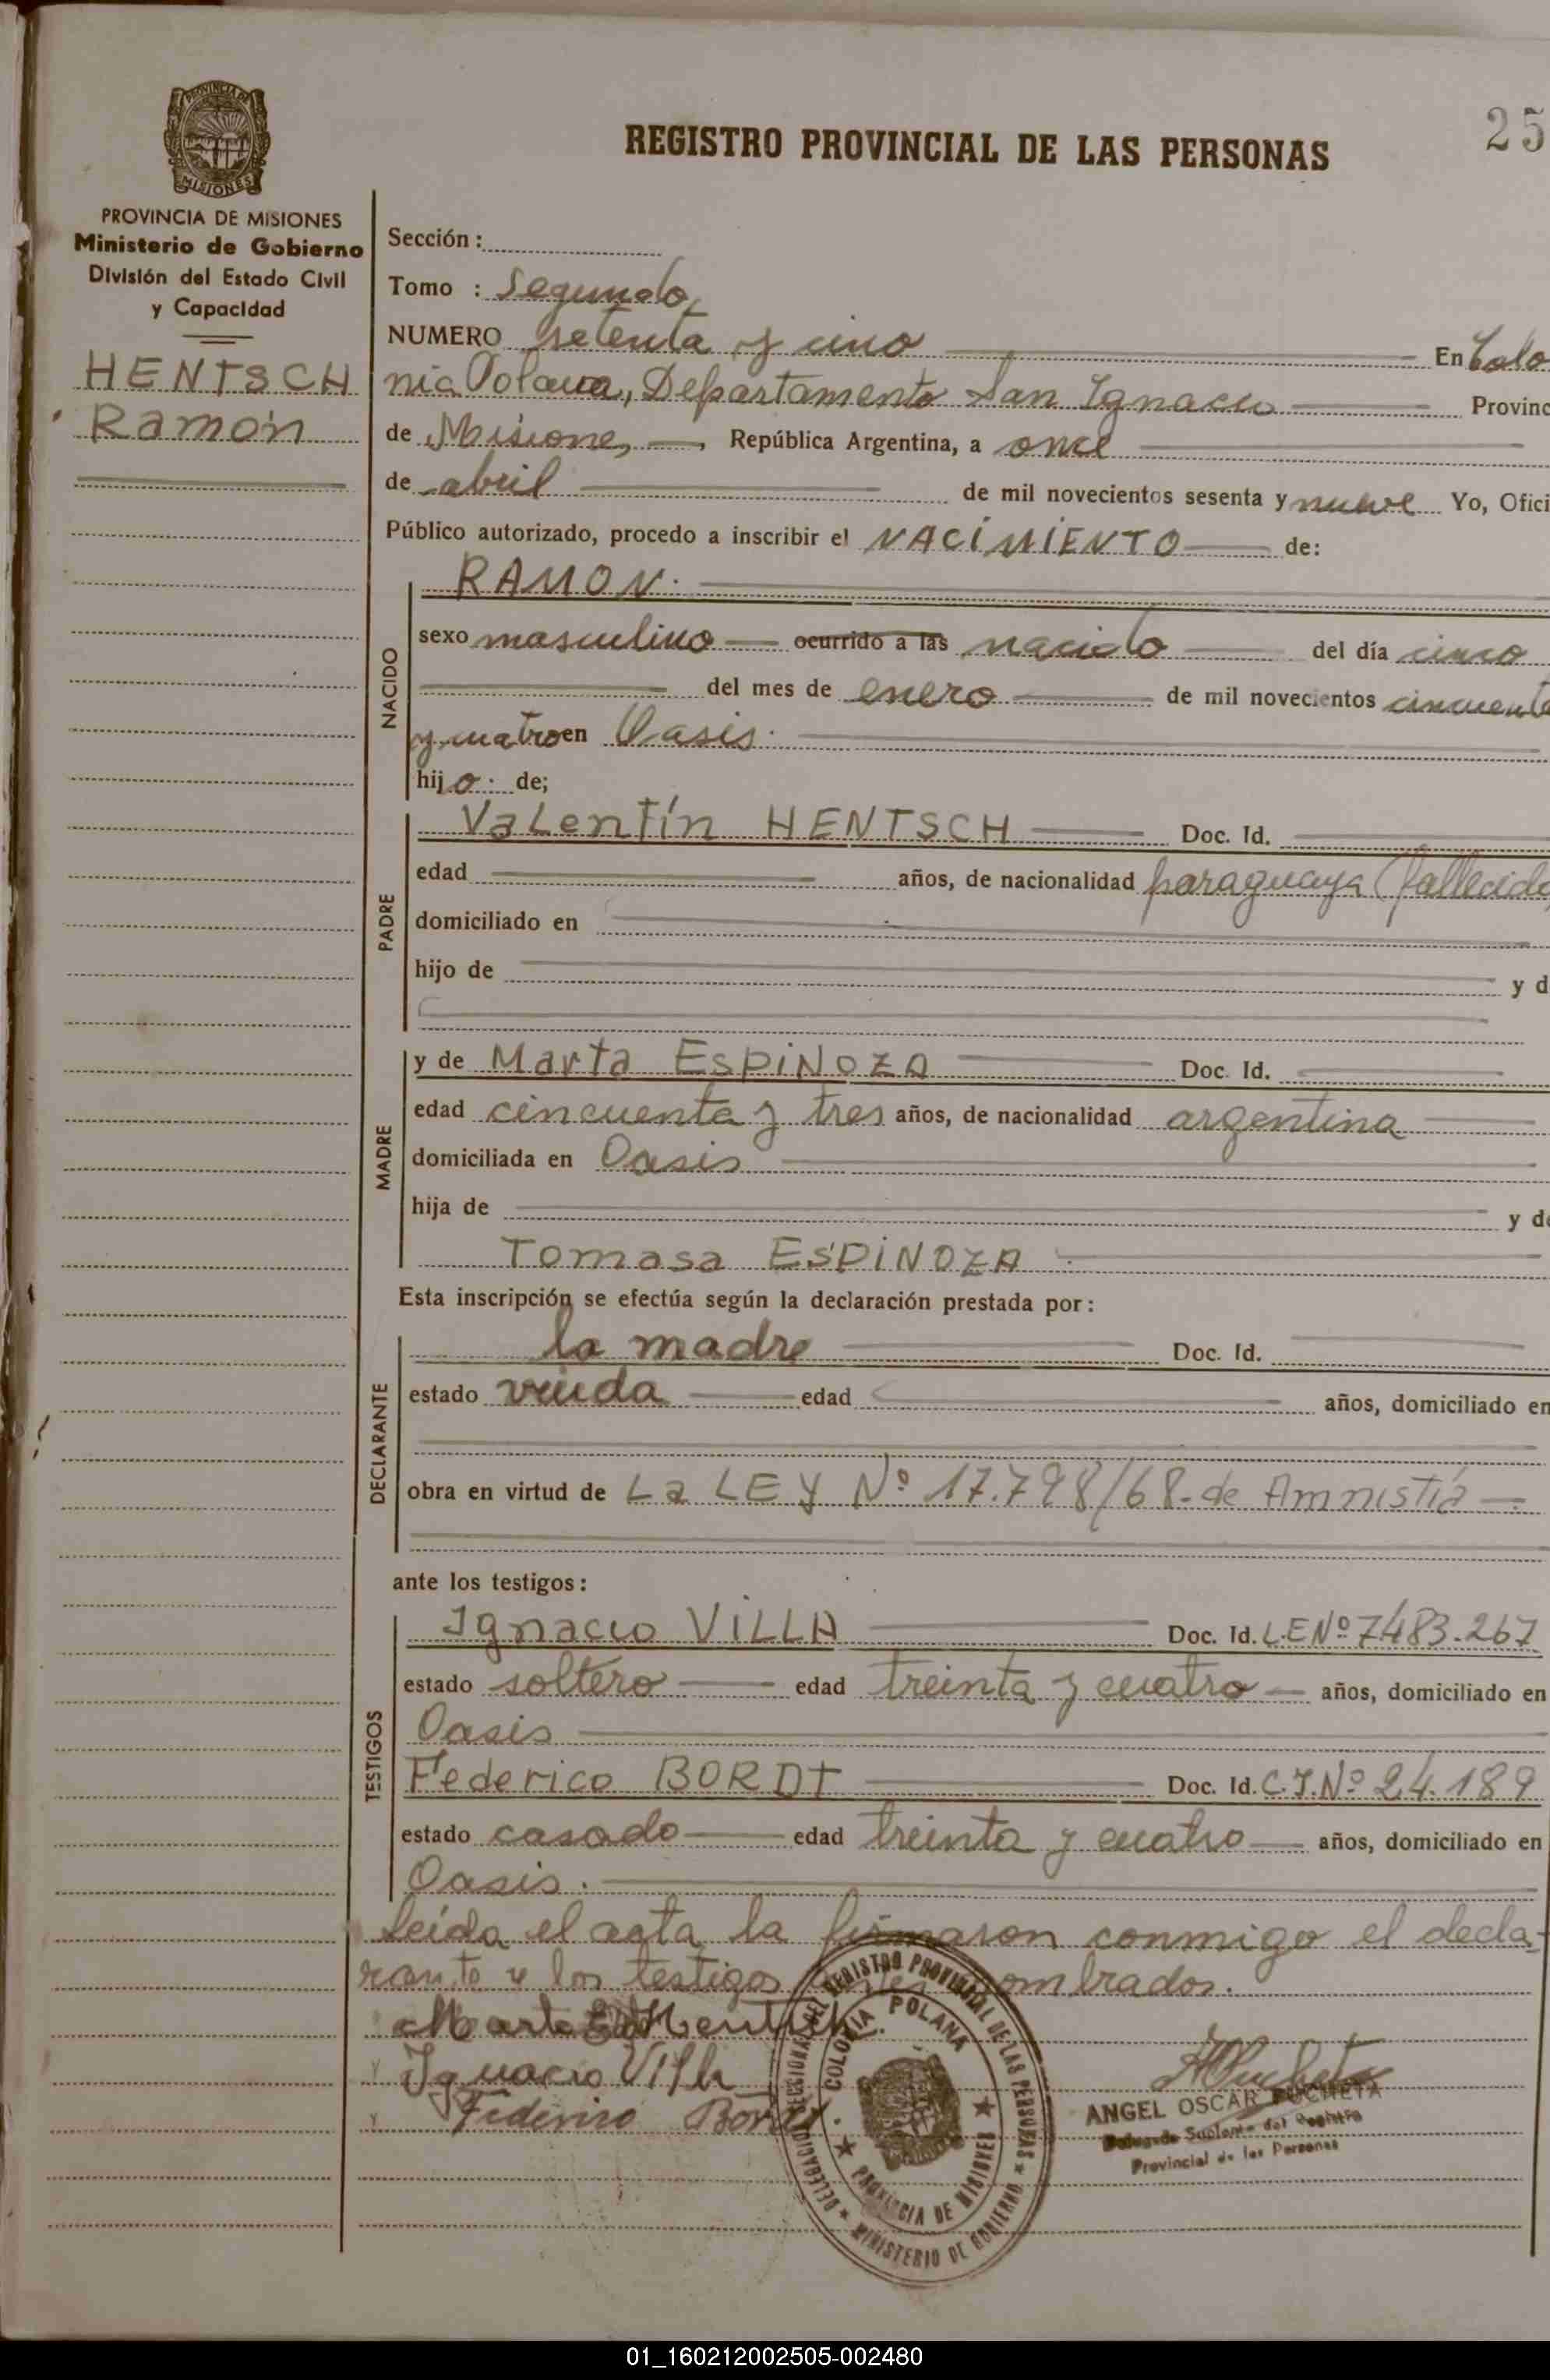 25
REGISTRO PROVINCIAL DE LAS PERSONAS
PROVINCIA DE MISIONES
MISIONES
PROVINCIA DE MISIONES
Ministerio de Gobierno
División del Estado Civil
y Capacidad
HENTSCH
Ramón
Sección :
Tomo : Segundo
NUMERO setenta y cinco En Colo
nia Polana, Departamento San Ignacio Provinc
de Misiones República Argentina, a once
de abril de mil novecientos sesenta y nueve Yo, Ofici
Público autorizado, procedo a inscribir el NACIMIENTO de:
NACIDO
RAMON.
sexo masculino ocurrido a las nacido del día cinco
del mes de enero de mil novecientos cincuenta
y cuatro en Oasis.
hijo. de;
PADRE
Valentín HENTSCH Doc. Id.
edad años, de nacionalidad paraguaya (fallecido
domiciliado en
hijo de y d
MADRE
y de Marta ESPINOZA Doc. Id.
edad cincuenta y tres años, de nacionalidad argentina
domiciliada en Oasis
hija de y de
Tomasa ESPINOZA
Esta inscripción se efectúa según la declaración prestada por:
DECLARANTE
la madre Doc. Id.
estado viuda edad años, domiciliado en
obra en virtud de La LEY Nº 17.798/68.-de Amnistía
ante los testigos:
TESTIGOS
Ignacio VILLA Doc. Id. L.E Nº 7483.267
estado soltero edad treinta y cuatro años, domiciliado en
Oasis
Federico BORDT Doc. Id. C.I. Nº 24.189
estado casado edad treinta y cuatro años, domiciliado en
Oasis.
Leída el acta la firmaron conmigo el decla-
rante y los testigos nombrados.
Marta Hentsch
Ignacio Villa
Federico Bordt.
DELEGACION SECCIONAL DEL REGISTRO PROVINCIAL DE LAS PERSONAS ★ MINISTERIO DE GOBIERNO ★
COLONIA POLANA ★ PROVINCIA DE MISIONES ★
ANGEL OSCAR PUCHETA
Delegado Suplente del Registro
Provincial de las Personas
01_160212002505-002480